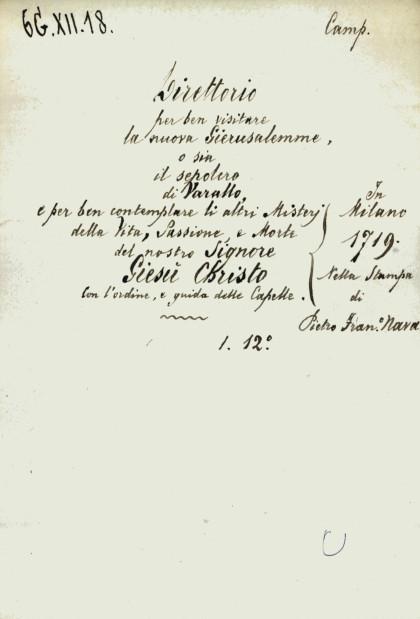 6G.XII.18.
Camp.
Direttorio
per ben visitare
la nuova Gierusalemme,
o sia
il sepolcro
di Varallo,
e per ben contemplare li altri Misterj
della Vita, Passione, e Morte
del nostro Signore
Giesù Christo
con l'ordine, e guida delle Capelle.
In
Milano
1719.
Nella Stampa
di
Pietro Fran.º Nava
1. 12º